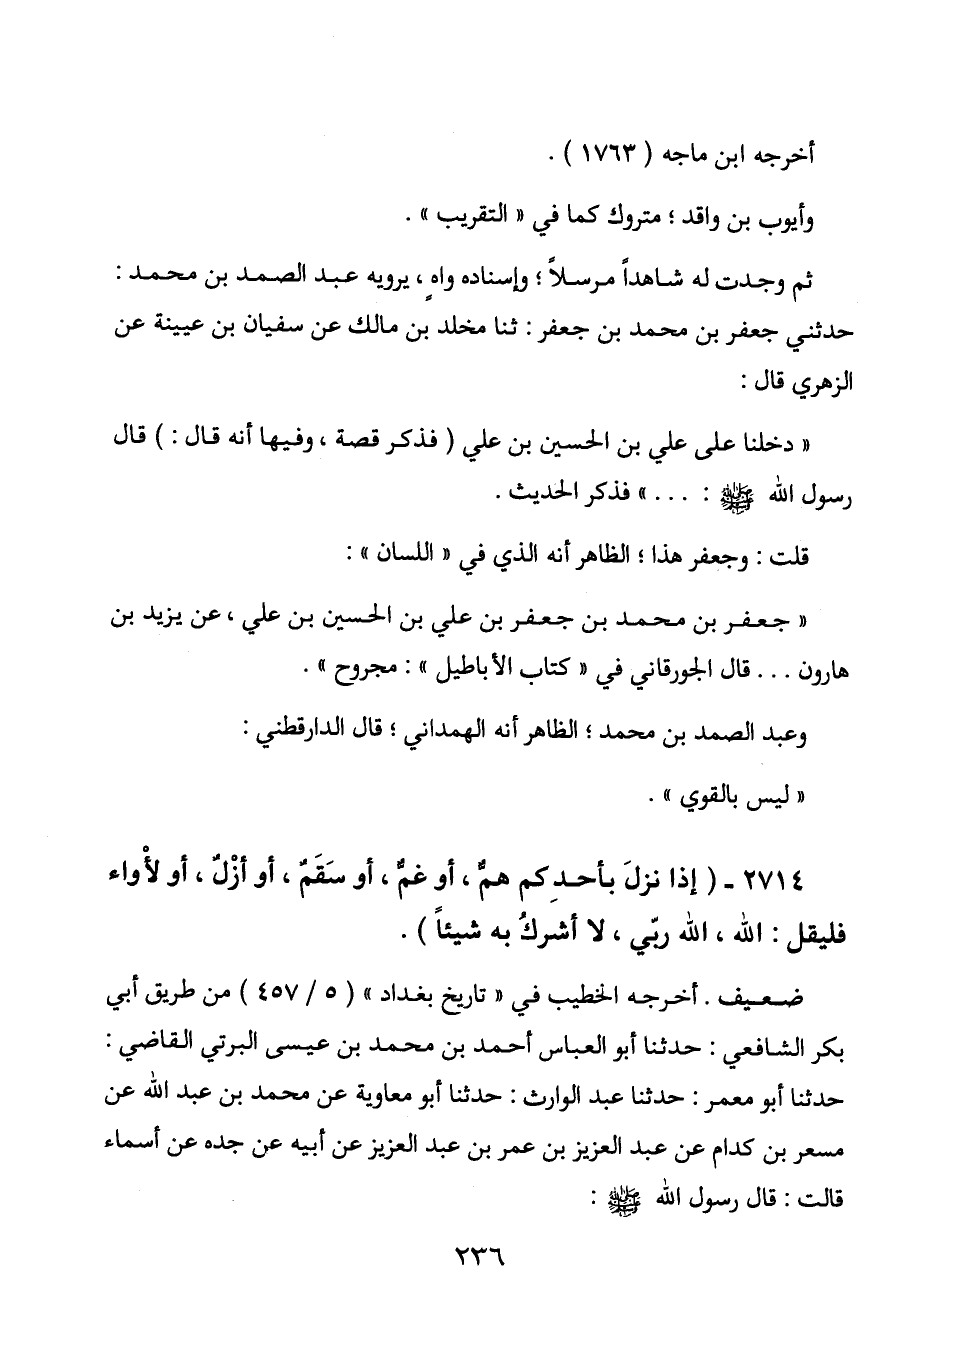 أخرجه ابن ماجه ( ١٧٦٣ ) .
وأيوب بن واقد ؛ متروك كما في « التقريب » .
ثم وجدت له شاهداً مرسلاً ؛ وإسناده واهٍ ، يرويه عبد الصمد بن محمد :
حدثني جعفر بن محمد بن جعفر : ثنا مخلد بن مالك عن سفيان بن عيينة عن
الزهري قال :
« دخلنا على علي بن الحسين بن علي ( فذكر قصة ، وفيها أنه قال : ) قال
رسول الله ﷺ : . . . » فذكر الحديث .
قلت : وجعفر هذا ؛ الظاهر أنه الذي في « اللسان » :
« جعفر بن محمد بن جعفر بن علي بن الحسين بن علي ، عن يزيد بن
هارون . . . قال الجورقاني في « كتاب الأباطيل » : مجروح » .
وعبد الصمد بن محمد ؛ الظاهر أنه الهمداني ؛ قال الدارقطني :
« ليس بالقوي » .
٢٧١٤ ـ ( إذا نزلَ بأحدِكم همٌّ ، أو غمٌّ ، أو سَقَمٌ ، أو أزْلٌ ، أو لأْواء
فليقل : الله ، الله ربّي ، لا أشركُ به شيئاً ) .
ضعيف . أخرجه الخطيب في « تاريخ بغداد » ( ٥ / ٤٥٧ ) من طريق أبي
بكر الشافعي : حدثنا أبو العباس أحمد بن محمد بن عيسى البرتي القاضي :
حدثنا أبو معمر : حدثنا عبد الوارث : حدثنا أبو معاوية عن محمد بن عبد الله عن
مسعر بن كدام عن عبد العزيز بن عمر بن عبد العزيز عن أبيه عن جده عن أسماء
قالت : قال رسول الله ﷺ :
٢٣٦